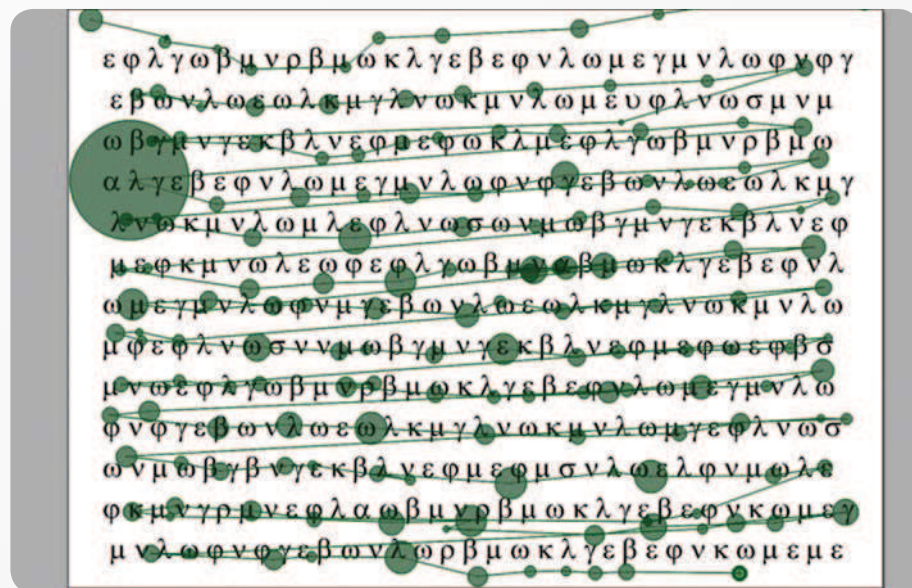 εφλγωβμνρβμωκλγεβεφνλωμεγμνλωφνφγ
εβωνλωεωλκμγλνωκμνλωμευφλνωσμνμ
ωβγμνγεκβλνεφμεφωκλμεφλγωβμνρβμω
αλγεβεφνλωμεγμνλωφνφγεβωνλωεωλκμγ
λνωκμνλωμλεφλνωσωνμωβγμνγεκβλνεφ
μεφκμνωλεωφεφλγωβμνρβμωκλγεβεφνλ
ωμεγμνλωφνμγεβωνλωεωλκμγλνωκμνλω
μφεφλνωσννμωβγμνγεκβλνεφμεφωεφβσ
μνωεφλγωβμνρβμωκλγεβεφνλωμεγμνλω
φνφγεβωνλωεωλκμγλνωκμνλωμγεφλνωσ
ωνμωβγβνγεκβλνεφμεφμσνλωελφνμωλε
φκμνγρμνεφλαωβμνρβμωκλγεβεφνκωμεγ
μνλωφνφγεβωνλωρβμωκλγεβεφνκωμεμε